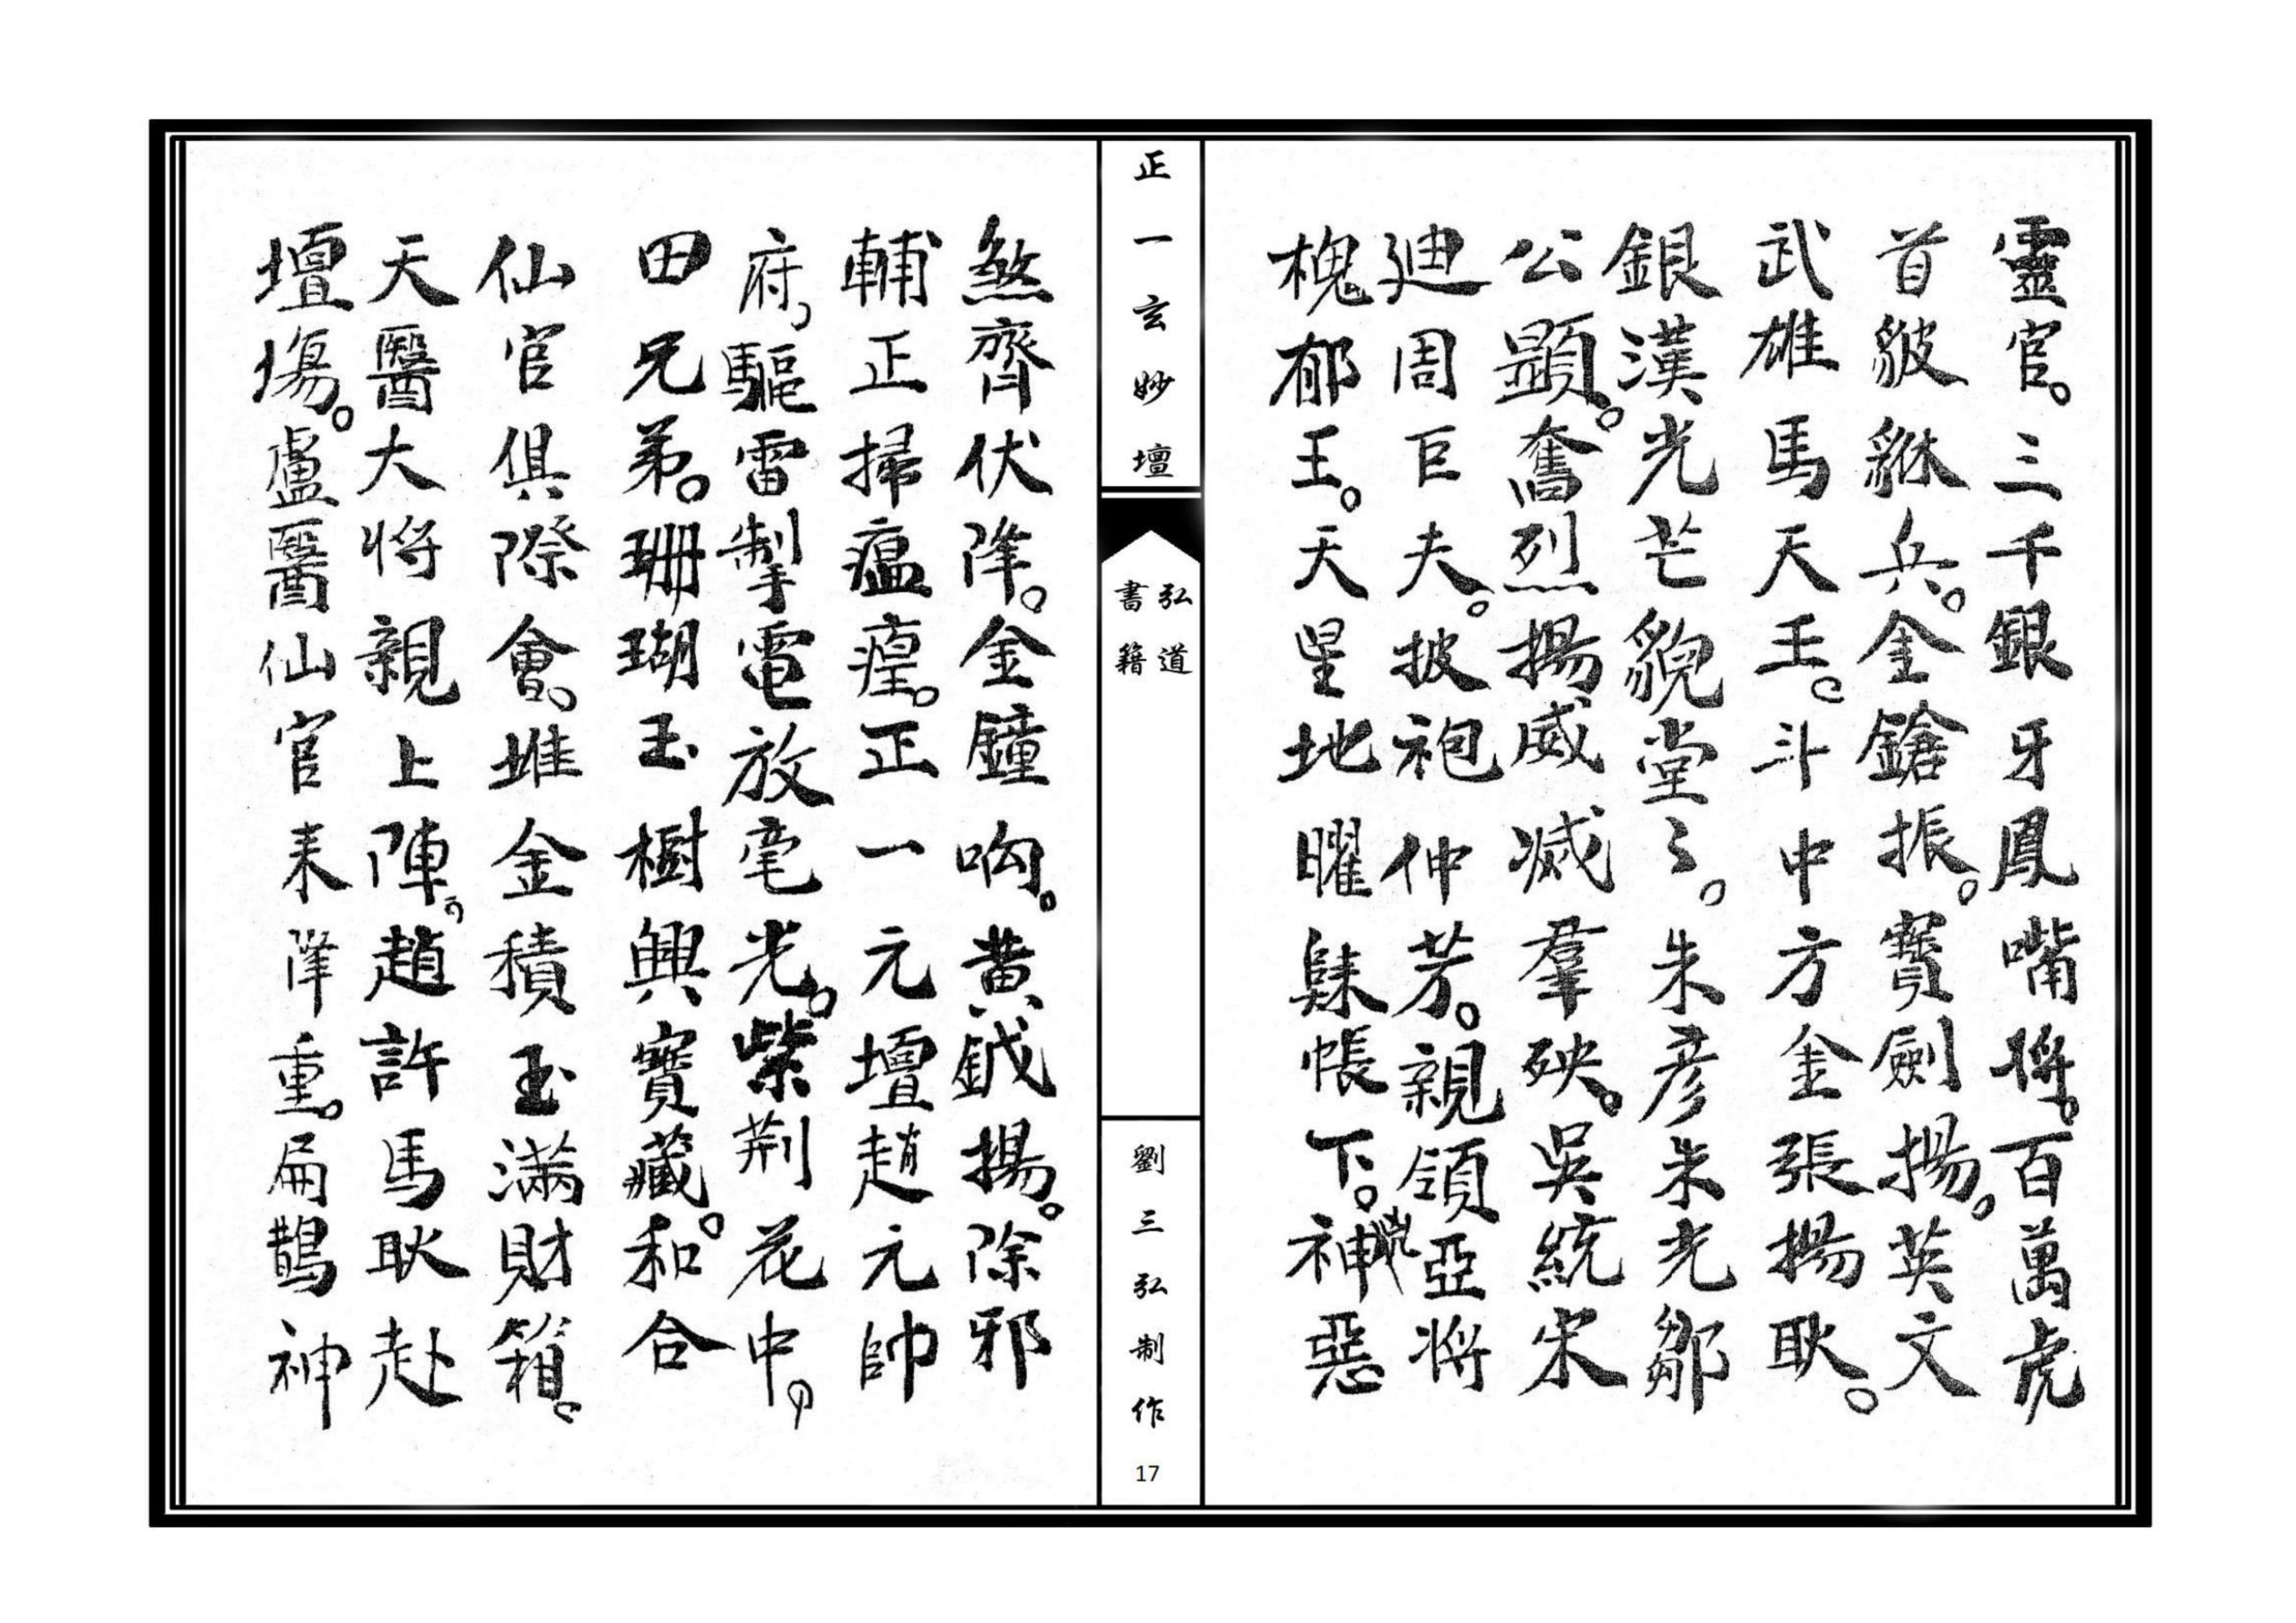 靈官。三千銀牙鳳嘴將。百萬虎
首貔貅兵。金鎗振。寶劍揚。英文
武雄馬天王。斗中方金張揚耿。
銀漢光芒貌堂〻。朱彥朱光鄒
公顯。奮烈揚威滅羣殃。吳統宋
廸周巨夫。披袍仲芳。親領亞將
槐郁王。天星地曜隸帳下。神惡
正一玄妙壇
弘道
書籍
劉三弘制作
17
煞齊伏降。金鐘响。黄鉞揚。除邪
輔正掃瘟㾮。正一元壇趙元帥
府，驅雷掣電放毫光。紫荆花中，
田兄弟。珊瑚玉樹興寶藏。和合
仙官俱際會，堆金積玉滿財箱。
天醫大将親上陣。趙許馬耿赴
壇塲。盧醫仙官来降重。扁鵲神